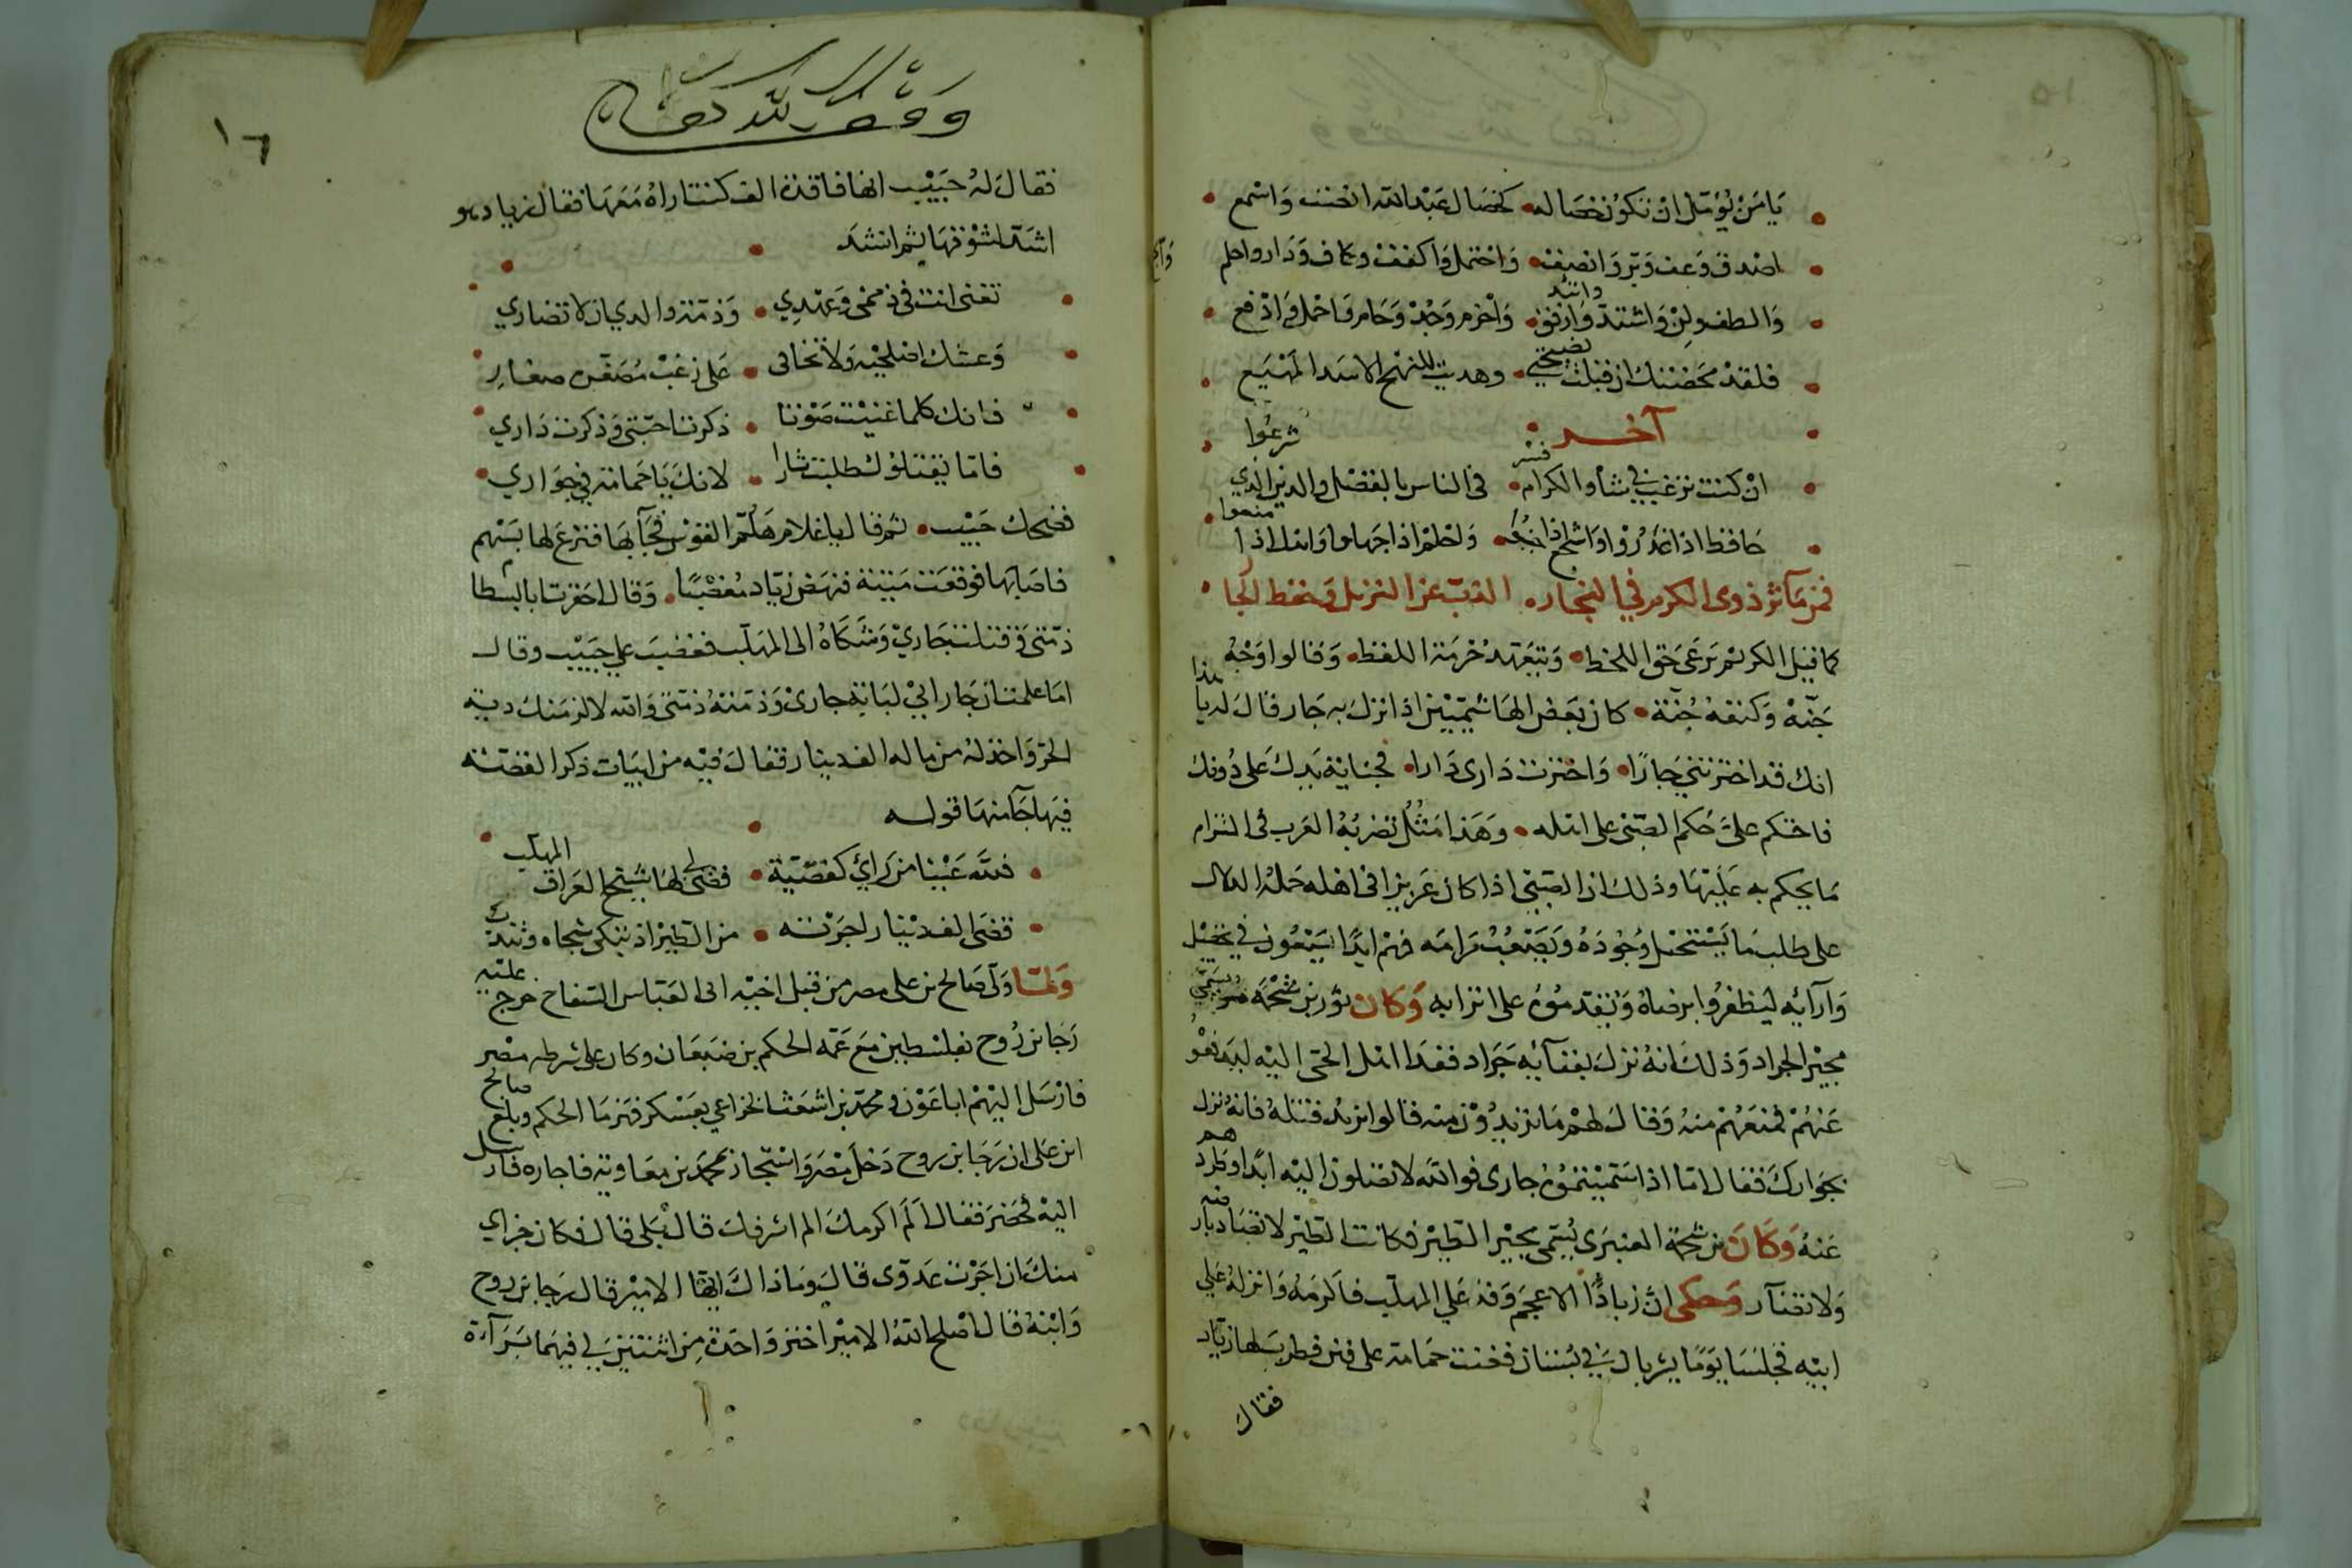 يَا مَنْ يُؤمّل ان تكونَ خصَاله كخصَال عَبْد الله انصت وَاسْمع
اصْدق وَعف وَبرّ وَانصف وَاحْتمل وَاكفف وكاف وَدَار واحلم
وَالطف ولِنْ وَاشتدّ وارفق واتئد وَاحْزم وَجُدْ وَحَام وَاحْمل وَادْفع
فلقدْ مَحَضْتك ان قبلت نصيحتي وهديت للنهج الاسد المهْيَع
آخر
انْ كنت ترغب في شأو الكرام فسر فى الناس بالفضل والدين الذي شرعُوا
حَافظ اذا غدَرُوا وَاشجع اذا وَاحْلمْ اذا جهلوا وَابذل اذا منعوا
فمن مَآثر ذوى الكرم في النجار الذبّ عن النزيل وَحفظ الجار
كما قيل الكريم يَرعَى حَق اللحظ وَيتعَهد حُرْمَة اللفظ وَقالوا وَجْهُ
جَنّة وَكنفهُ جُنّة كان بَعض الهَاشميّيْن اذا نزلَ به جَار قالَ له يا هذا
انك قد اخترتني جَارًا وَاخترت دَارى دَارا فجناية يَدِك على دُونك
فاحتكم علىّ حُكم الصّبى على اهله وَهَذا مَثَلٌ تضربُهُ العَرب فى التزام
مَا يحكم به عَليْهَا وذلك ان الصّبيّ اذا كان عَزيزا فى اهله حَملهُ الدلال
على طلب مَا يَسْتحيل وُجُودَهُ وَيَصْعُبُ مَرَامَه فهمْ ابدًا يَسْعون في تخييْل
وَآرآئه ليَظفرُوا برضاهُ وَيقدمُوهُ على اترابه وَكان ثور بن شحْمَة يسَمّي
مجيْر الجراد وَذلكَ انهُ نزلَ بفنآئِه جَرَاد فغدا اهل الحَى اليْه ليَدفعُوهُ
عَنهُمْ فمنعَهُمْ منهُ وَقالَ لهُمْ مَا تريدُوْن منه قالوا نريدُ قتلهُ فانهُ نزل
بجوَارك فقال امّا اذا سَمّيْتمُوهُ جارى فوالله لا تصلون اليْه ابدًا وطردهم
عَنهُ وَكَانَ بن شحمة العنبَرى يُسَمّى مجيْر الطيْر فكانت الطيْر لا تصَاد
وَلا تضآر وَحكى انّ زيادًا الاعجَم وَفدَ عَلي المهلّب فاَكرمَهُ وَانزلهُ عَلي
ابنِه فجلسَا يَوْمًا يشربان في بُستان فغنت حَمامَة على فنن فطربَ لها زيَاد
فقال
وقف لله تعالى
١٦
فقالَ لهُ حَبيْب انهَا فاقدة الف كنت اراهُ مَعَهَا فقال زياد هو
اشدّ لشوْقهَا ثم انشدَ
تغنى انت فى ذممى وَعهْدِي وَذمّة والدي ان لا تضاري
وَعشك اصلحيْه وَلا تخافى عَلى زغب مُصَغّرة صغارِ
فانك كلما غنيْت صَوْتا ذكرت احبّتى وَذكرت دَاري
فامّا يَقتلوْك طلبت ثارا لانكِ يَا حَمامَة في جوَاري
فضحك حَبيْب ثم قال يا غلام هَلمّ القوْس فجَآ بهَا فنزعَ لها بسَهم
فاصَابهَا فوَقعَت مَيّتة فنهَض زيّاد مُغضبًا وَقال اخفرت ابا بسطام
ذمّتى وَقتلت جَاريْ وَشكاهُ الى المهَلّب فغضبَ علي حَبيْب وقال
امَا علمت ان جَار ابيْ لبَابة جارىْ وَذمّتهُ ذمّتى وَالله لالزمَنكَ ديَة
الحرّ وَاخذ لهُ من ماله الف دينار فقالَ فيْه من ابيَات ذكرا لقصّته
فيْهَا جَآ منهَا قوله
فلله عَيْنا من رَاىَ كقضيّة قضىَ لى بهَا شيْخ العرَاق المهلّب
قضَى الف ديْنار لجَار اجرْته من الطيْر اذ يَبكى شجاه وَيندبُ
وَلمّا وَلّى صَالح بن على مصر من قبل اخيْه ابى العَبّاس السّفاح خرج عليْه
رَجَا بن رُوح بفلسْطين مَعَ عَمّه الحكم بن ضبعَان وكان على شرطه مصْر
فارْسَل اليْهمْ ابا عَوْن وَمحمّد بن اشعَث الخزاعي بعَسْكر فهزمَا الحكم وبلغ صالح
ابن عَلى ان رَجَا بن روح دَخلَ مصْرَ وَاسْتجارَ بمحَمّد بن معَاويَة فاجاره فارسل
اليْهْ فحَضرَ فقالَ اَلَم اكرمكَ الم اشرفكَ قال بَلى قالَ فكانَ جزاي
منك ان اجَرْت عَدوّى قالَ وَمَا ذاكَ ايّهَا الاميْر قالَ رَجا بن روح
وَابْنهُ قالَ اصْلحَ اللهُ الامِيْر اختر وَاحدَة مِن اثنتيْن لي فيهمَا بَرَآءة